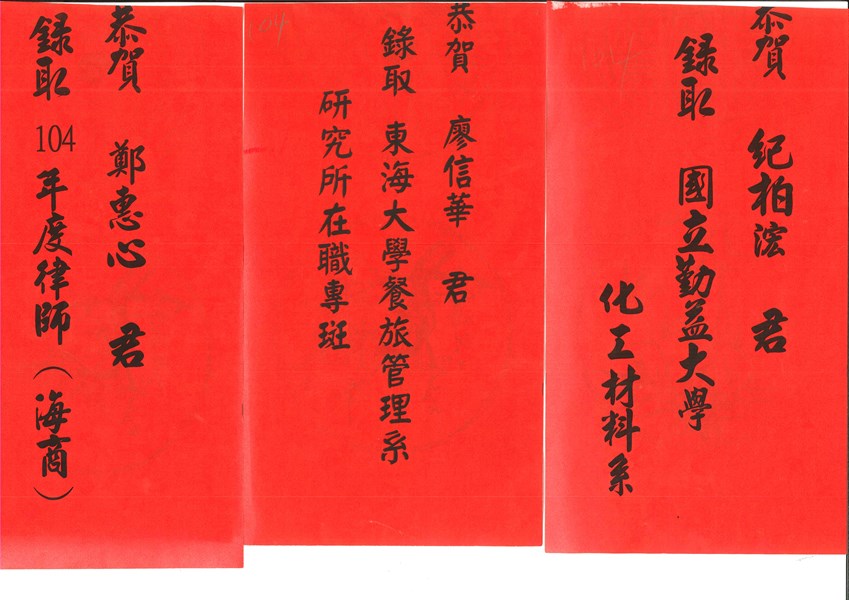 恭賀 紀柏浤 君
錄取 國立勤益大學
化工材料系
恭賀 廖信華 君
錄取 東海大學餐旅管理系
研究所在職專班
恭賀 鄭惠心 君
錄取 104年度律師(海商)